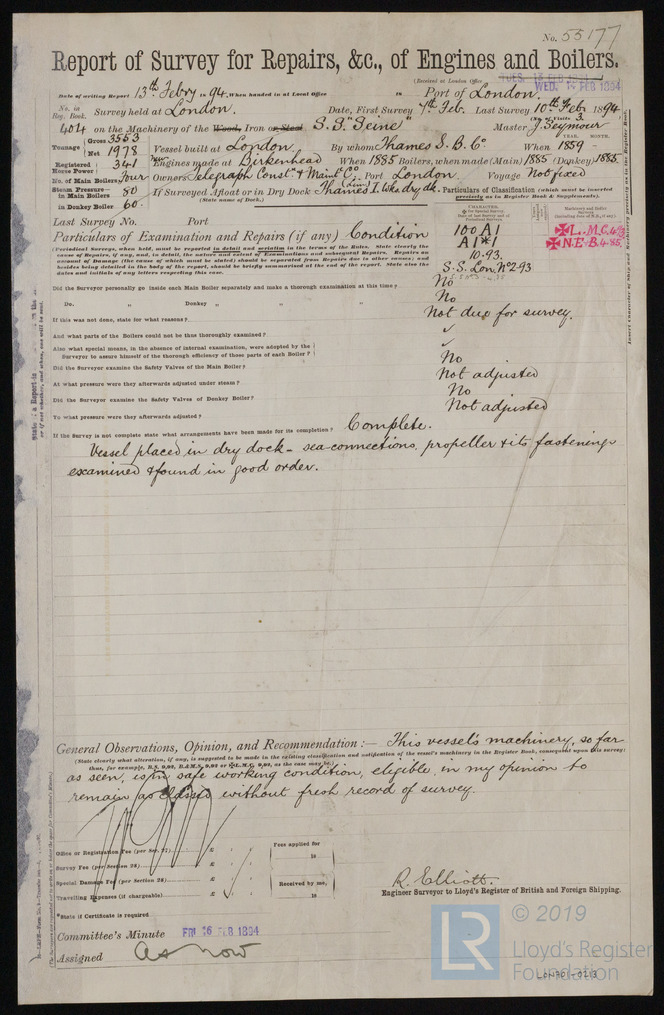 No. 55177
Report of Survey for Repairs, &c., of Engines and Boilers.
(Received at London Office TUES. 13 FEB 1894
WED. 14 FEB 1894
Date of writing Report 13th Febry 1894. When handed in at Local Office 18 Port of London.
No. in Reg. Book. Survey held at London. Date, First Survey 7th Feb. Last Survey 10th Feb 1894
(No. of Visits 3.
404 on the Machinery of the Wood, Iron or Steel S.S. "Seine" Master J. Seymour
Tonnage Gross 3553 Net 1978 Vessel built at London. By whom Thames S. B. Co. When 1859
YEAR. MONTH.
Registered Horse Power 341 New Engines made at Birkenhead When 1885 Boilers, when made (Main) 1885 (Donkey) 1885.
No. of Main Boilers Four Owners Telegraph Constn & Maintce Co. Port London. Voyage Not fixed
Steam Pressure in Main Boilers 80 If Surveyed Afloat or in Dry Dock Thames I. Wks dry dk. Particulars of Classification (which must be inserted precisely as in Register Book & Supplements).
in Donkey Boiler 60. (State name of Dock.)
Last Survey No. Port
Particulars of Examination and Repairs (if any) Condition
CHARACTER.
100 A1
A1*1
10.93.
S.S. Lon. No2-93
L.M.C. 4.93
N.E.B. 4.85.
(Periodical Surveys, when held, must be reported in detail and seriatim in the terms of the Rules. State clearly the cause of Repairs, if any, and, in detail, the nature and extent of Examinations and subsequent Repairs. Repairs on account of Damage (the cause of which must be stated) should be separated from Repairs due to other causes; and besides being detailed in the body of the report, should be briefly summarised at the end of the report. State also the dates and initials of any letters respecting this case.
Did the Surveyor personally go inside each Main Boiler separately and make a thorough examination at this time? No
Do. „ Donkey „ „ „ No
If this was not done, state for what reasons? Not due for survey.
And what parts of the Boilers could not be thus thoroughly examined? ✓
Also what special means, in the absence of internal examination, were adopted by the Surveyor to assure himself of the thorough efficiency of those parts of each Boiler? ✓
Did the Surveyor examine the Safety Valves of the Main Boiler? No
At what pressure were they afterwards adjusted under steam? Not adjusted
Did the Surveyor examine the Safety Valves of Donkey Boiler? No
To what pressure were they afterwards adjusted? Not adjusted
If the Survey is not complete state what arrangements have been made for its completion? Complete.
Vessel placed in dry dock - sea-connections, propeller & its fastenings
examined & found in good order.
General Observations, Opinion, and Recommendation:— This vessel's machinery, so far
(State clearly what alteration, if any, is suggested to be made in the existing classification and notification of the vessel's machinery in the Register Book, consequent upon this survey: thus, for example, B.S. 9,93, B.&M.S. 9,93 or L.M.C. 9,93, as the case may be.)
as seen, is in safe working condition, eligible, in my opinion to
remain as classed without fresh record of survey.
Office or Registration Fee (per Sec. 27) £ Fees applied for
Survey Fee (per Section 28) £ 18
Special Damage Fee (per Section 28) £ Received by me,
Travelling Expenses (if chargeable) £ 18
R. Elliott.
Engineer Surveyor to Lloyd's Register of British and Foreign Shipping.
*State if Certificate is required
Committee's Minute FRI. 16 FEB 1894
Assigned as now
LR © 2019
Lloyd's Register
Foundation
LON701-0213